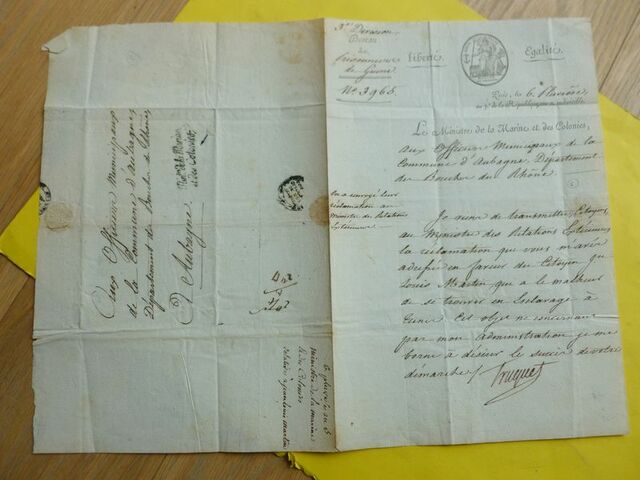 3me Division
Bureau
des
Prisonniers
de Guerre
No. 3965.
Liberté,
Egalité.
Paris, le 6. Pluviose
an 5e de la République, une et indivisible.
Le Ministre de la Marine et des Colonies,
aux Officiers Municipaux de la
Commune d'Aubagne, Département
des Bouches du Rhône
On a envoyé leur
réclamation au
Ministre des Relations
Extérieures
Je viens de transmettre, Citoyens,
au Ministre des Relations Extérieures
la réclamation que vous m'avez
adressée en faveur du Citoyen
Louis Martin, qui a le malheur
de se trouver en Esclavage à
Tunis. Cet objet ne concernant
pas mon administration, je me
borne à désirer le succès de votre
démarche./.
Truguet
Aux Officiers Municipaux
de la Commune d'Aubagne
Département des Bouches du Rhône,
à Aubagne
6 pluviose an 5
Ministre de la marine
& des Colonies
relative à Louis Martin